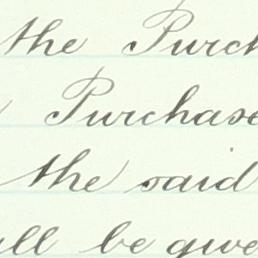 the Purch
Purchase
the said
all be give